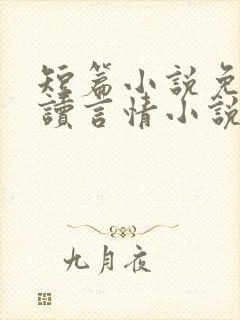 短篇小說免
讀言情小說
九月夜